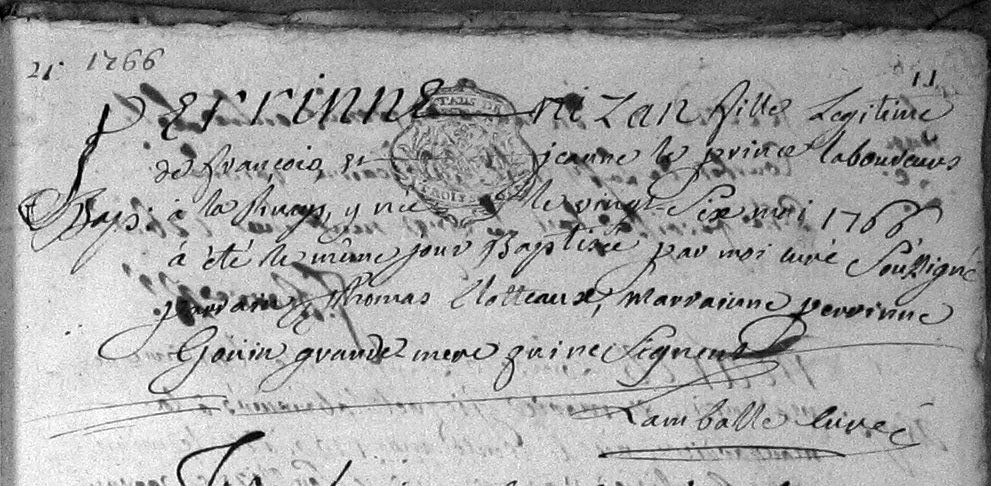 21 1766 11
Perrinne nizan fille Legitime
de françois et jeanne le prince laboureurs
Bap: à la y née le vingt Six mai 1766
à été le même jour Baptisée par moi curé Soussigné
parrain Thomas Clotteaux, Marrainne perrinne
Goüin grande mere qui ne Signent
Lamballe Curé